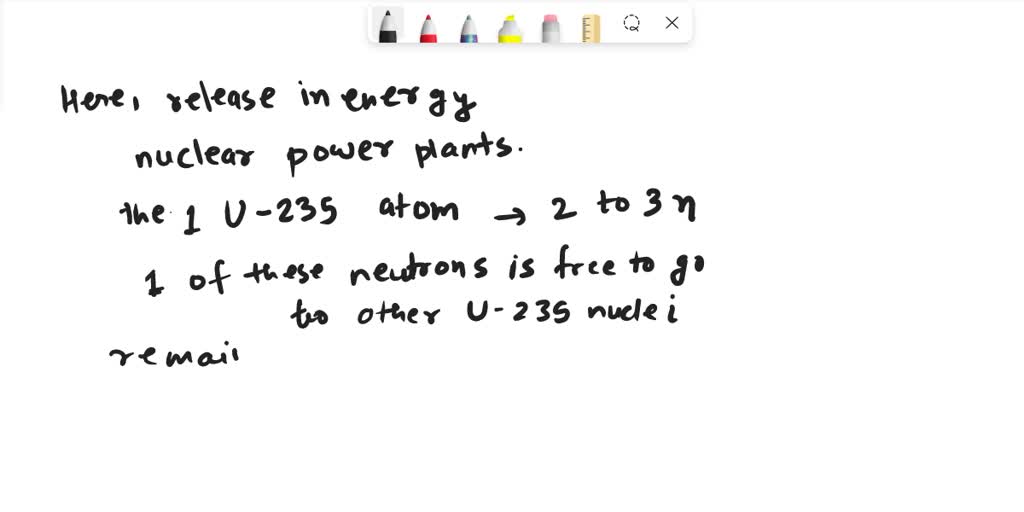 Here, release in energy
nuclear power plants.
the 1 U-235 atom → 2 to 3 η
1 of these neutrons is free to go
to other U-235 nuclei
remai